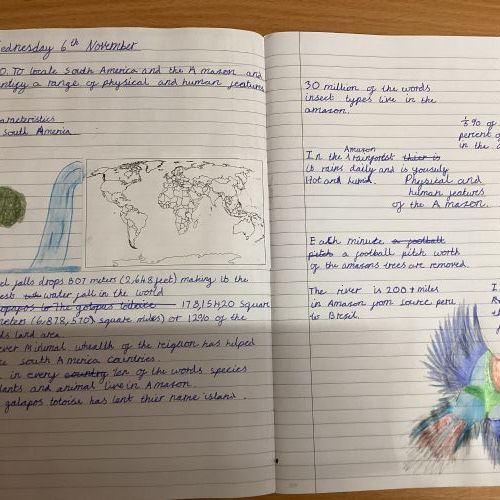 ednesday 6th November
O: To locate South America and the Amazon and
entify a range of physical and human features
aracteristics
South America
el falls drops 807 meters (2,648 feet) making it the
est water fall in the world
17,815,420 square
meters (6,878,570) square miles) or 12% of the
ds land area
ver Minimal whealth of the reigion has helped
e south America countries.
in every ten of the words species
lants and animal live in Amazon.
galapos totoise has lent thier name island.
30 million of the words
insect types live in the
amazon.
% of
percent of
in the a
In the Amazon rainforest
it rains daily and is yousely
Hot and humid.
Physical and
human features
of the Amazon.
Each minute
a football pitch worth
of the amazons trees are removed.
The river is 200+ miles
in Amazon from source peru
to Bresil.
I